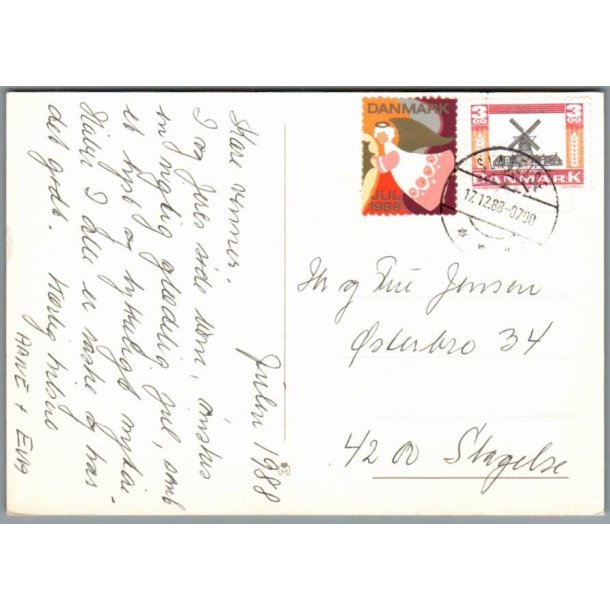 Kære venner. Julen 1988
I og jeres ønskes
en rigtig glædelig jul, samt
et lyst og lykkeligt nytår.
Håber I alle er raske og har
det godt. Kærlig hilsen
+ EVA
DANMARK
JUL
1988
3 00 3 00
DANMARK
17.12.88-0700
Hr og Fru Jensen
Østerbro 34
4200 Slagelse